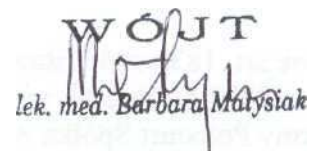 WÓJT
lek. med. Barbara Małysiak